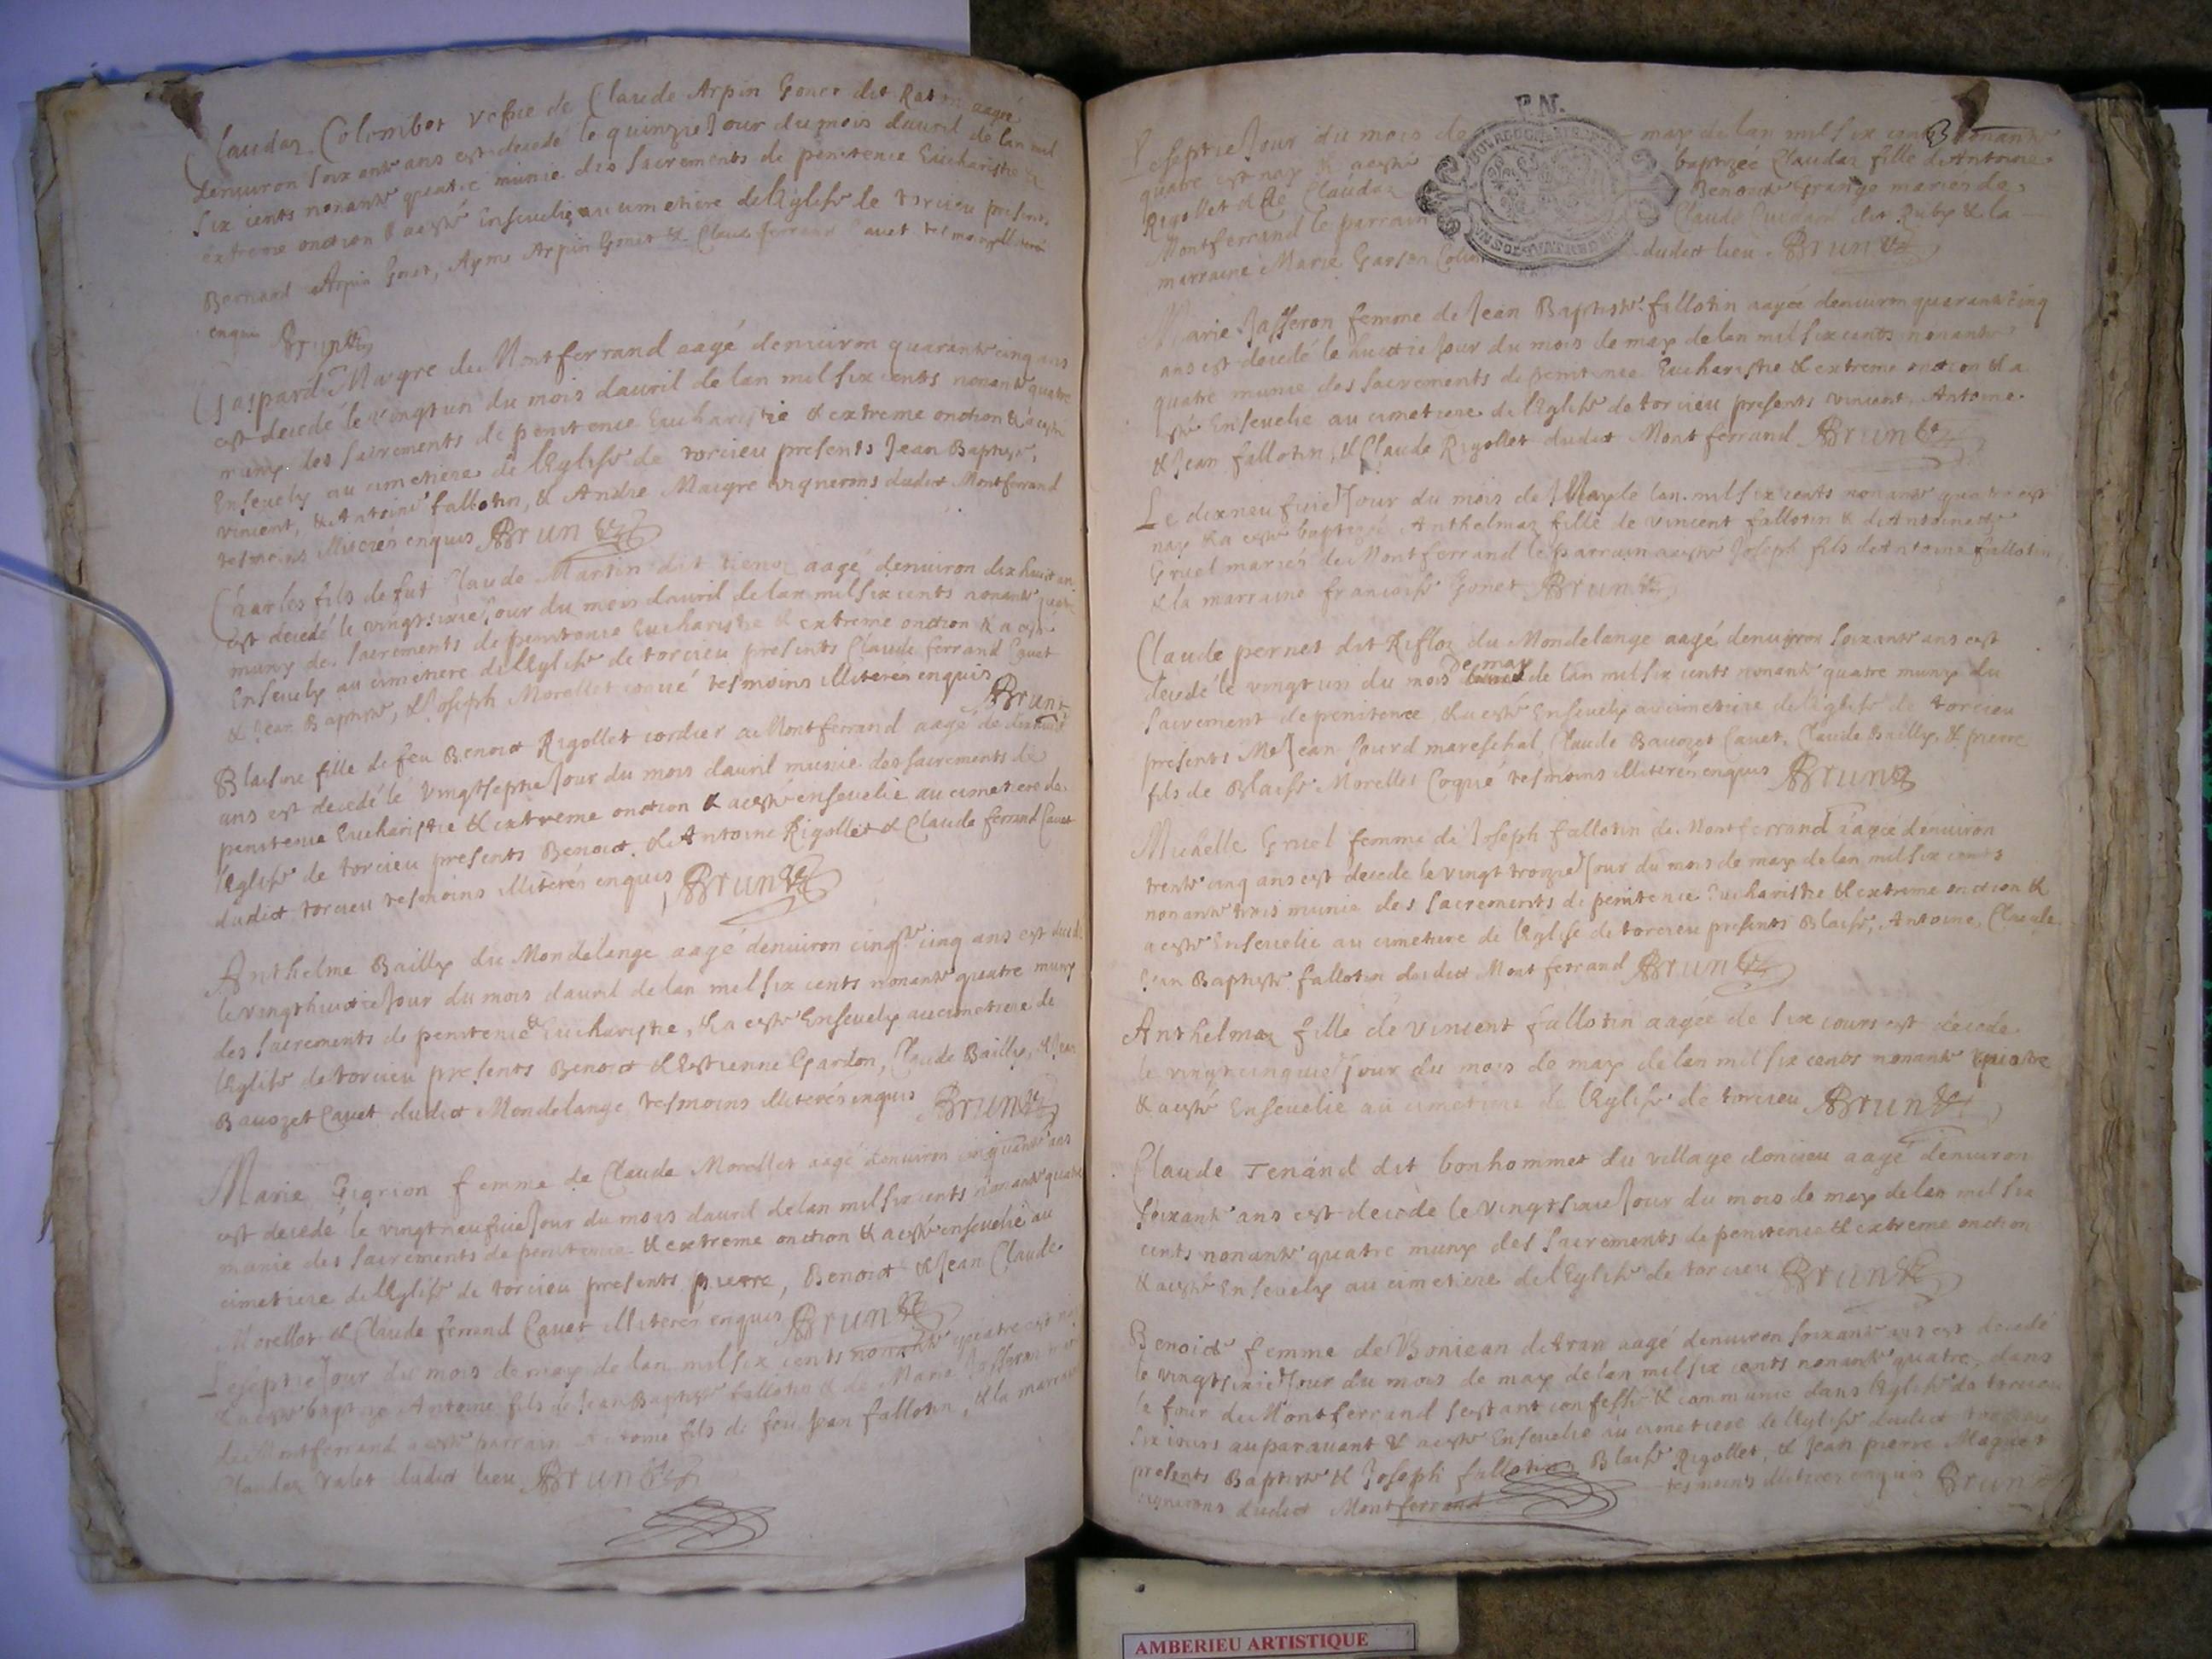 Claudaz Colombet vefue de Claude Arpin Gonet dit Raton aagée
denuiron soixante ans est decedé le quinzie Jour du mois dauril de lan mil
six cents nonante quatre munie des sacrements de penitence Eucharistie &
extreme onction & a esté Enseuelie au cimetiere de lEglise de torcieu presents
Bernard Arpin Gonet, Ayme Arpin Gonet & Claude ferrand Cauet
enquis Brunet
Gaspard Maigre du Montferrand aagé denuiron quarante cinq ans
est decedé le vingt un du mois dauril de lan mil six cents nonante quatre
muny des sacrements de penitence Eucharistie & extreme onction & a esté
Enseuely au cimetiere de lEglise de torcieu presents Jean Baptiste,
vincent, & Antoine fallotin, & Andre Maigre vignerons dudict Montferrand
tesmoins illiterés enquis Brunet
Charles fils de fut Claude Martin dit aagé denuiron dix huict ans
est decedé le vingtsixie Jour du mois dauril de lan mil six cents nonante quatre
muny des sacrements de penitence Eucharistie & extreme onction & a esté
Enseuely au cimetiere de lEglise de torcieu presents Claude ferrand Cauet
& Jean Baptiste, & Joseph Morellet coqué tesmoins illiterés enquis
Brunet
Blaisine fille de feu Benoict Rigollet cordier de Montferrand aagé de
ans est decedé le vingtseptie Jour du mois dauril munie des sacrements de
penitence Eucharistie & extreme onction & a esté enseuelie au cimetiere de
lEglise de torcieu presents Benoict, & Antoine Rigollet & Claude ferrand Cauet
dudict torcieu tesmoins illiterés enquis Brunet
Anthelme Bailly du Mondelange aagé denuiron cinqte cinq ans est decedé
le vingthuictie Jour du mois dauril de lan mil six cents nonante quatre muny
des sacrements de penitence & Eucharistie, & a esté Enseuely au cimetiere de
lEglise de torcieu presents Benoict & Estienne Gardon, Claude Bailly, & Jean
Bauozet Cauet dudict Mondelange tesmoins illiterés enquis Brunet
Marie femme de Claude Morellet aagé denuiron cinquante ans
est decedé le vingtneufuie Jour du mois dauril de lan mil six cents nonante quatre
munie des sacrements de penitence & extreme onction & a esté enseuelie au
cimetiere de lEglise de torcieu presents pierre, Benoict & Jean Claude
Morellet & Claude ferrand Cauet illiterés enquis Brunet
Le septie Jour du mois de may de lan mil six cents nonante quatre est nay
& a esté baptizé Antoine fils de Jean Baptiste fallotin & de Marie Jasseron
du Montferrand a esté parrain Antoine fils de feu Jean fallotin, & la marraine
Claudaz Valet dudict lieu Brunet
P.N.
3
Le septie Jour du mois de may de lan mil six cents nonante
quatre est nay & a esté baptizée Claudaz fille de Antoine
Rigollet & de Claudaz Benoicte Grange mariés de
Montferrand le parrain Claude dit Ruby & la
marraine Marie Garsen dudict lieu. Brunet
Marie Jasseron femme de Jean Baptiste fallotin aagée denuiron quarante cinq
ans est decedé le huictie Jour du mois de may de lan mil six cents nonante
quatre munie des sacrements de penitence Eucharistie & extreme onction & a
esté Enseuelie au cimetiere de lEglise de torcieu presents vincent, Antoine
& Jean fallotin, & Claude Rigollet dudict Montferrand Brunet
Le dixneufuie Jour du mois de May de lan mil six cents nonante quatre est
nay & a esté baptizé Anthelmaz fille de vincent fallotin & de Antoinette
Gruel mariés du Montferrand le parrain a esté Joseph fils de Antoine fallotin
& la marraine francoise Gonet Brunet
Claude pernet dit Rifloz du Mondelange aagé denuiron soixante ans est
decedé le vingt un du mois de may de lan mil six cents nonante quatre muny du
sacrement de penitence, & a esté Enseuely au cimetiere de lEglise de torcieu
presents Me Jean Jourd mareschal, Claude Bauozet Cauet, Claude Bailly, & pierre
fils de Blaise Morellet Coqué tesmoins illiterés enquis Brunet
Michelle Gruel femme de Joseph fallotin de Montferrand aagée denuiron
trente cinq ans est decedé le vingt troizie Jour du mois de may de lan mil six cents
nonante trois munie des sacrements de penitence Eucharistie & extreme onction &
a esté Enseuelie au cimetiere de lEglise de torcieu presents Blaise, Antoine, Claude
Jean Baptiste fallotin dudict Montferrand Brunet
Anthelmaz fille de vincent fallotin aagée de six jours est decedé
le vingtcinquie Jour du mois de may de lan mil six cents nonante quatre
& a esté Enseuelie au cimetiere de lEglise de torcieu Brunet
Claude Tenánd dit bonhommet du village doncieu aagé denuiron
soixante ans est decedé le vingtsixie Jour du mois de may de lan mil six
cents nonante quatre muny des sacrements de penitence & extreme onction
& a esté Enseuely au cimetiere de lEglise de torcieu Brunet
Benoicte femme de Bonjean aagé denuiron soixante ans est decedé
le vingtsixie Jour du mois de may de lan mil six cents nonante quatre, dans
le four du Montferrand sestant confessé & communié dans lEglise de torcieu
six iours auparauant & a esté Enseuelie au cimetiere de lEglise dudict torcieu
presents Baptiste & Joseph fallotin Blaise Rigollet, & Jean pierre Magnet
vignerons dudict Montferrand tesmoins illiterés enquis Brunet
AMBERIEU ARTISTIQUE